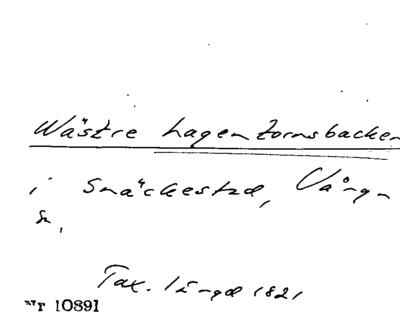 Wästre hagen tornsbacken
i Snäckestad, Vånga
sn,
Tax. längd 1821
Nr 10891